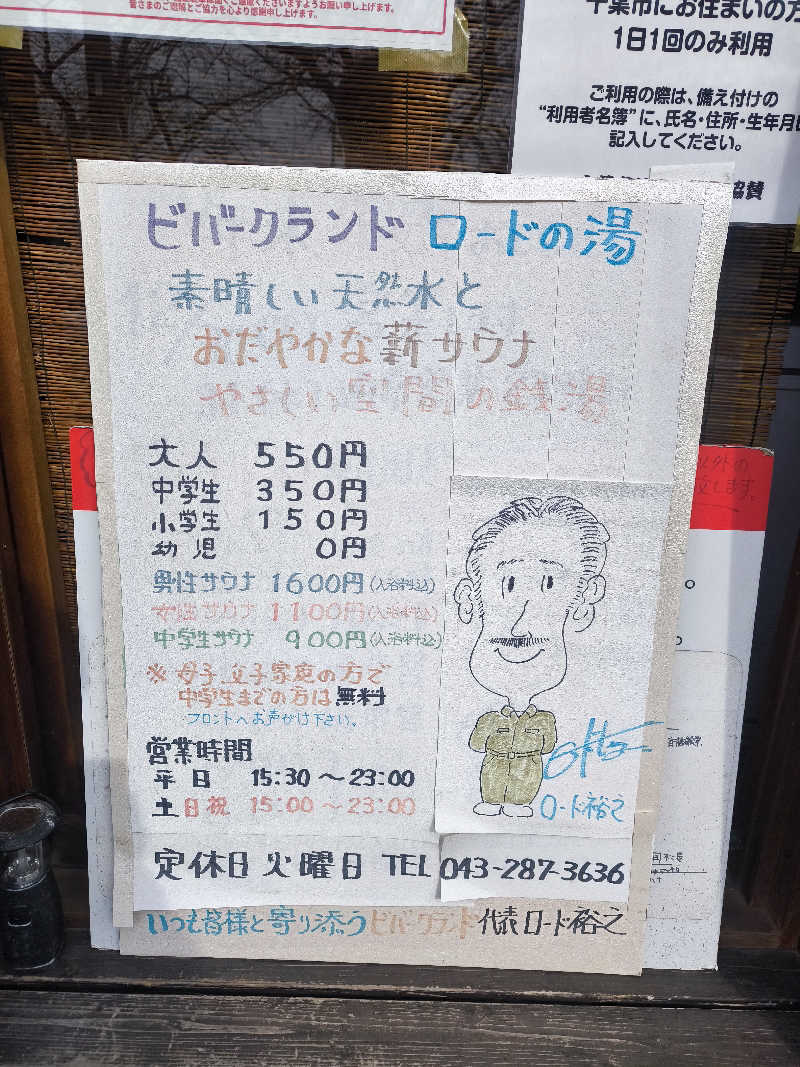 皆さまのご理解とご協力を心より感謝申し上げます。
千葉市にお住まいの方
1日1回のみ利用
ご利用の際は、備え付けの
“利用者名簿”に、氏名・住所・生年月日
記入してください。
協賛
ビバークランド ロードの湯
素晴しい天然水と
おだやかな薪サウナ
やさしい空間の銭湯
大人 550円
中学生 350円
小学生 150円
幼児 0円
男性サウナ 1600円(入浴料込)
女性サウナ 1100円(入浴料込)
中学生サウナ 900円(入浴料込)
※母子、父子家庭の方で
中学生までの方は無料
フロントへお声がけ下さい。
営業時間
平日 15:30〜23:00
土日祝 15:00〜23:00
ロード裕之
定休日 火曜日 TEL 043-287-3636
いつも皆様と寄り添うビバークランド代表ロード裕之
以外の
します。